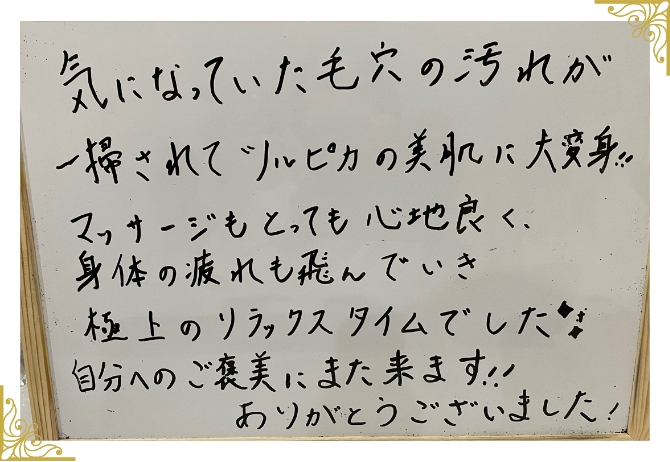 気になっていた毛穴の汚れが
一掃されてツルピカの美肌に大変身!!
マッサージもとっても心地良く、
身体の疲れも飛んでいき
極上のリラックスタイムでした
自分へのご褒美にまた来ます!!
ありがとうございました!